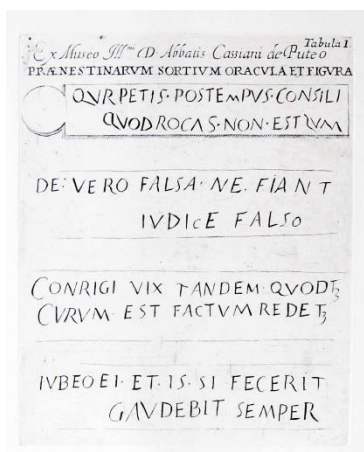 Tabula I.
Ex Museo Ill.mi D Abbatis Cassiani de Puteo
PRÆNESTINARVM SORTIVM ORACVLA ET FIGVRA
QVR PETIS· POSTEMPVS· CONSILI
QVOD ROCAS· NON· EST QVM
DE· VERO FALSA· NE· FIANT
IVDICE FALSO
CONRIGI VIX TANDEM QVOD
CVRVM· EST FACTVM REDE
IVBEO EI· ET· IS· SI FECERIT
GAVDEBIT SEMPER